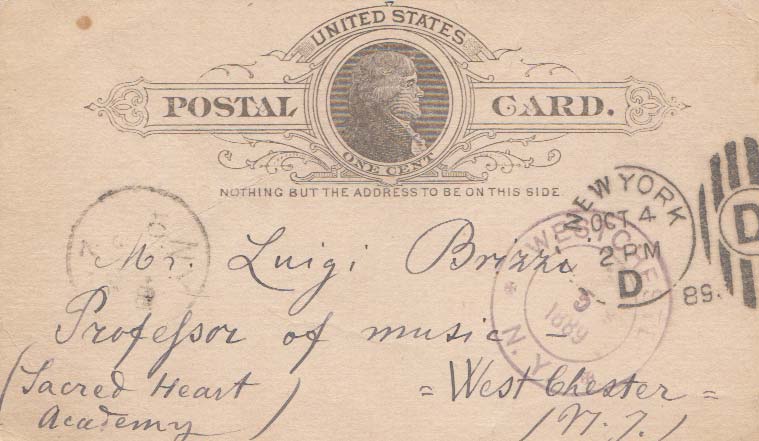 UNITED STATES
POSTAL CARD.
ONE CENT
NOTHING BUT THE ADDRESS TO BE ON THIS SIDE.
NEW YORK
OCT 4
2 PM
D
89.
D
WESTCHESTER
5
1889
N.Y.
Mr. Luigi Brizzi
Professor of music -
(Sacred Heart
Academy)
= West Chester =
(N. Y.)